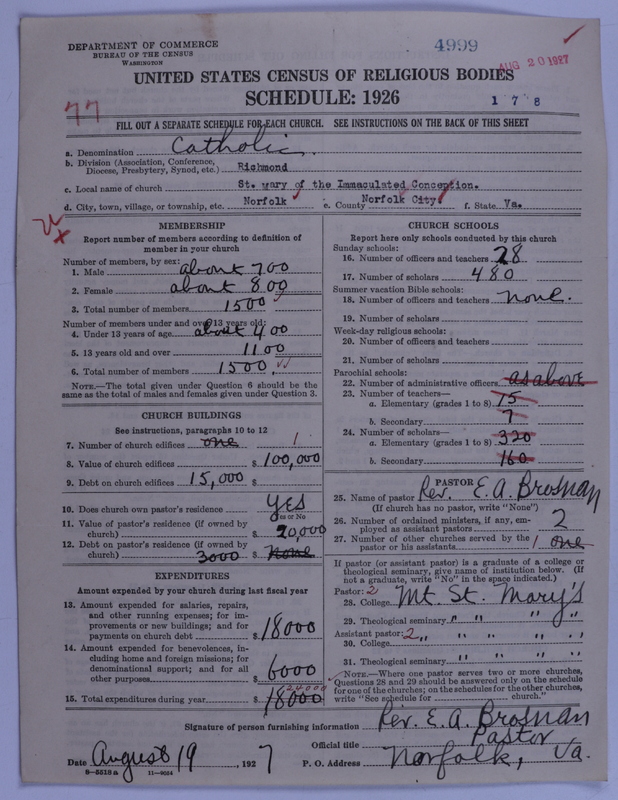 DEPARTMENT OF COMMERCE
BUREAU OF THE CENSUS
WASHINGTON
4999
AUG 20 1927
UNITED STATES CENSUS OF RELIGIOUS BODIES
SCHEDULE: 1926
1 7 8
77
FILL OUT A SEPARATE SCHEDULE FOR EACH CHURCH. SEE INSTRUCTIONS ON THE BACK OF THIS SHEET
a. Denomination Catholic.
b. Division (Association, Conference, Diocese, Presbytery, Synod, etc.) Richmond
c. Local name of church St. Mary of the Immaculated Conception.
d. City, town, village, or township, etc. Norfolk e. County Norfolk City f. State Va.
MEMBERSHIP
Report number of members according to definition of
member in your church
Number of members, by sex:
1. Male about 700
2. Female about 800
3. Total number of members 1500
Number of members under and over 13 years old:
4. Under 13 years of age about 400
5. 13 years old and over 1100
6. Total number of members 1500
NOTE.—The total given under Question 6 should be the
same as the total of males and females given under Question 3.
CHURCH BUILDINGS
See instructions, paragraphs 10 to 12
7. Number of church edifices one 1
8. Value of church edifices $100,000
9. Debt on church edifices 15,000 $
10. Does church own pastor's residence Yes
Yes or No
11. Value of pastor's residence (if owned by
church) $20,000
12. Debt on pastor's residence (if owned by
church) 3000 $ None
EXPENDITURES
Amount expended by your church during last fiscal year
13. Amount expended for salaries, repairs,
and other running expenses; for im-
provements or new buildings; and for
payments on church debt $18000
14. Amount expended for benevolences, in-
cluding home and foreign missions; for
denominational support; and for all
other purposes $6000
24000
15. Total expenditures during year $18000
CHURCH SCHOOLS
Report here only schools conducted by this church
Sunday schools:
16. Number of officers and teachers 28
17. Number of scholars 480
Summer vacation Bible schools:
18. Number of officers and teachers none.
19. Number of scholars
Week-day religious schools:
20. Number of officers and teachers
21. Number of scholars
Parochial schools:
22. Number of administrative officers as above
23. Number of teachers—
a. Elementary (grades 1 to 8) 15
b. Secondary 7
24. Number of scholars—
a. Elementary (grades 1 to 8) 320
b. Secondary 160
PASTOR
25. Name of pastor Rev. E. A. Brosnan
(If church has no pastor, write "None")
26. Number of ordained ministers, if any, em-
ployed as assistant pastors 2
27. Number of other churches served by the
pastor or his assistants 1 one
If pastor (or assistant pastor) is a graduate of a college or
theological seminary, give name of institution below. (If
not a graduate, write "No" in the space indicated.)
Pastor: 2
28. College Mt. St. Mary's
29. Theological seminary " " " " "
Assistant pastor: 2
30. College " " " " "
31. Theological seminary " " " " "
NOTE.—Where one pastor serves two or more churches,
Questions 28 and 29 should be answered only on the schedule
for one of the churches; on the schedules for the other churches,
write "See schedule for church."
Signature of person furnishing information Rev. E. A. Brosnan
Official title Pastor
Date August 19, 1927 P. O. Address Norfolk, Va.
8—5518 a 11—9024